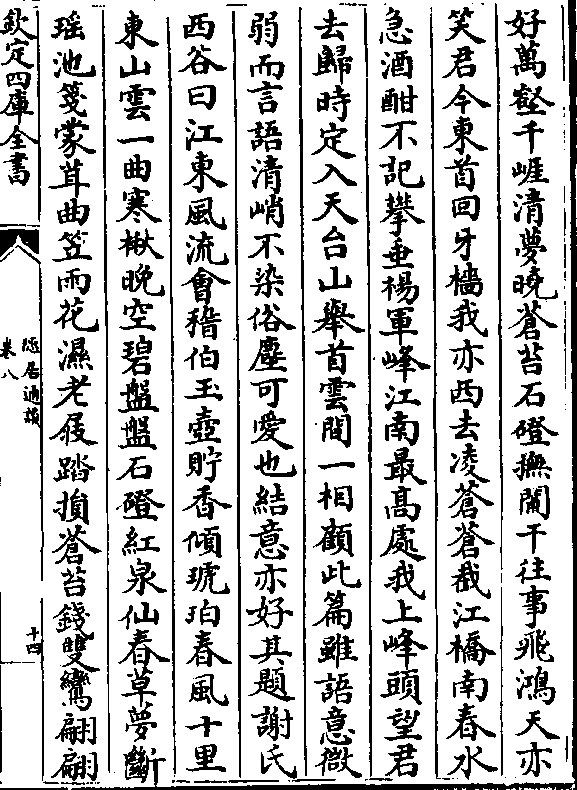 好萬壑千崕清夢曉蒼苔石磴撫闌干往事飛鴻天亦
笑君今東首回牙檣我亦西去凌蒼蒼截江橋南春水
急酒酣不記攀垂楊軍峰江南最髙處我上峰頭望君
去歸時定入天台山舉首雲間一相顧此篇雖語意微
弱而言語清峭不染俗塵可愛也結意亦好其題謝氏
西谷曰江東風流會稽伯玉壺貯香傾琥珀春風十里
東山雲一曲寒楸晚空碧盤盤石磴紅泉仙春草夢斷
瑶池箋蒙茸曲笠雨花濕老屐踏損蒼苔錢雙鸞翩翩
欽定四庫全書
隱居通議
卷八
十四